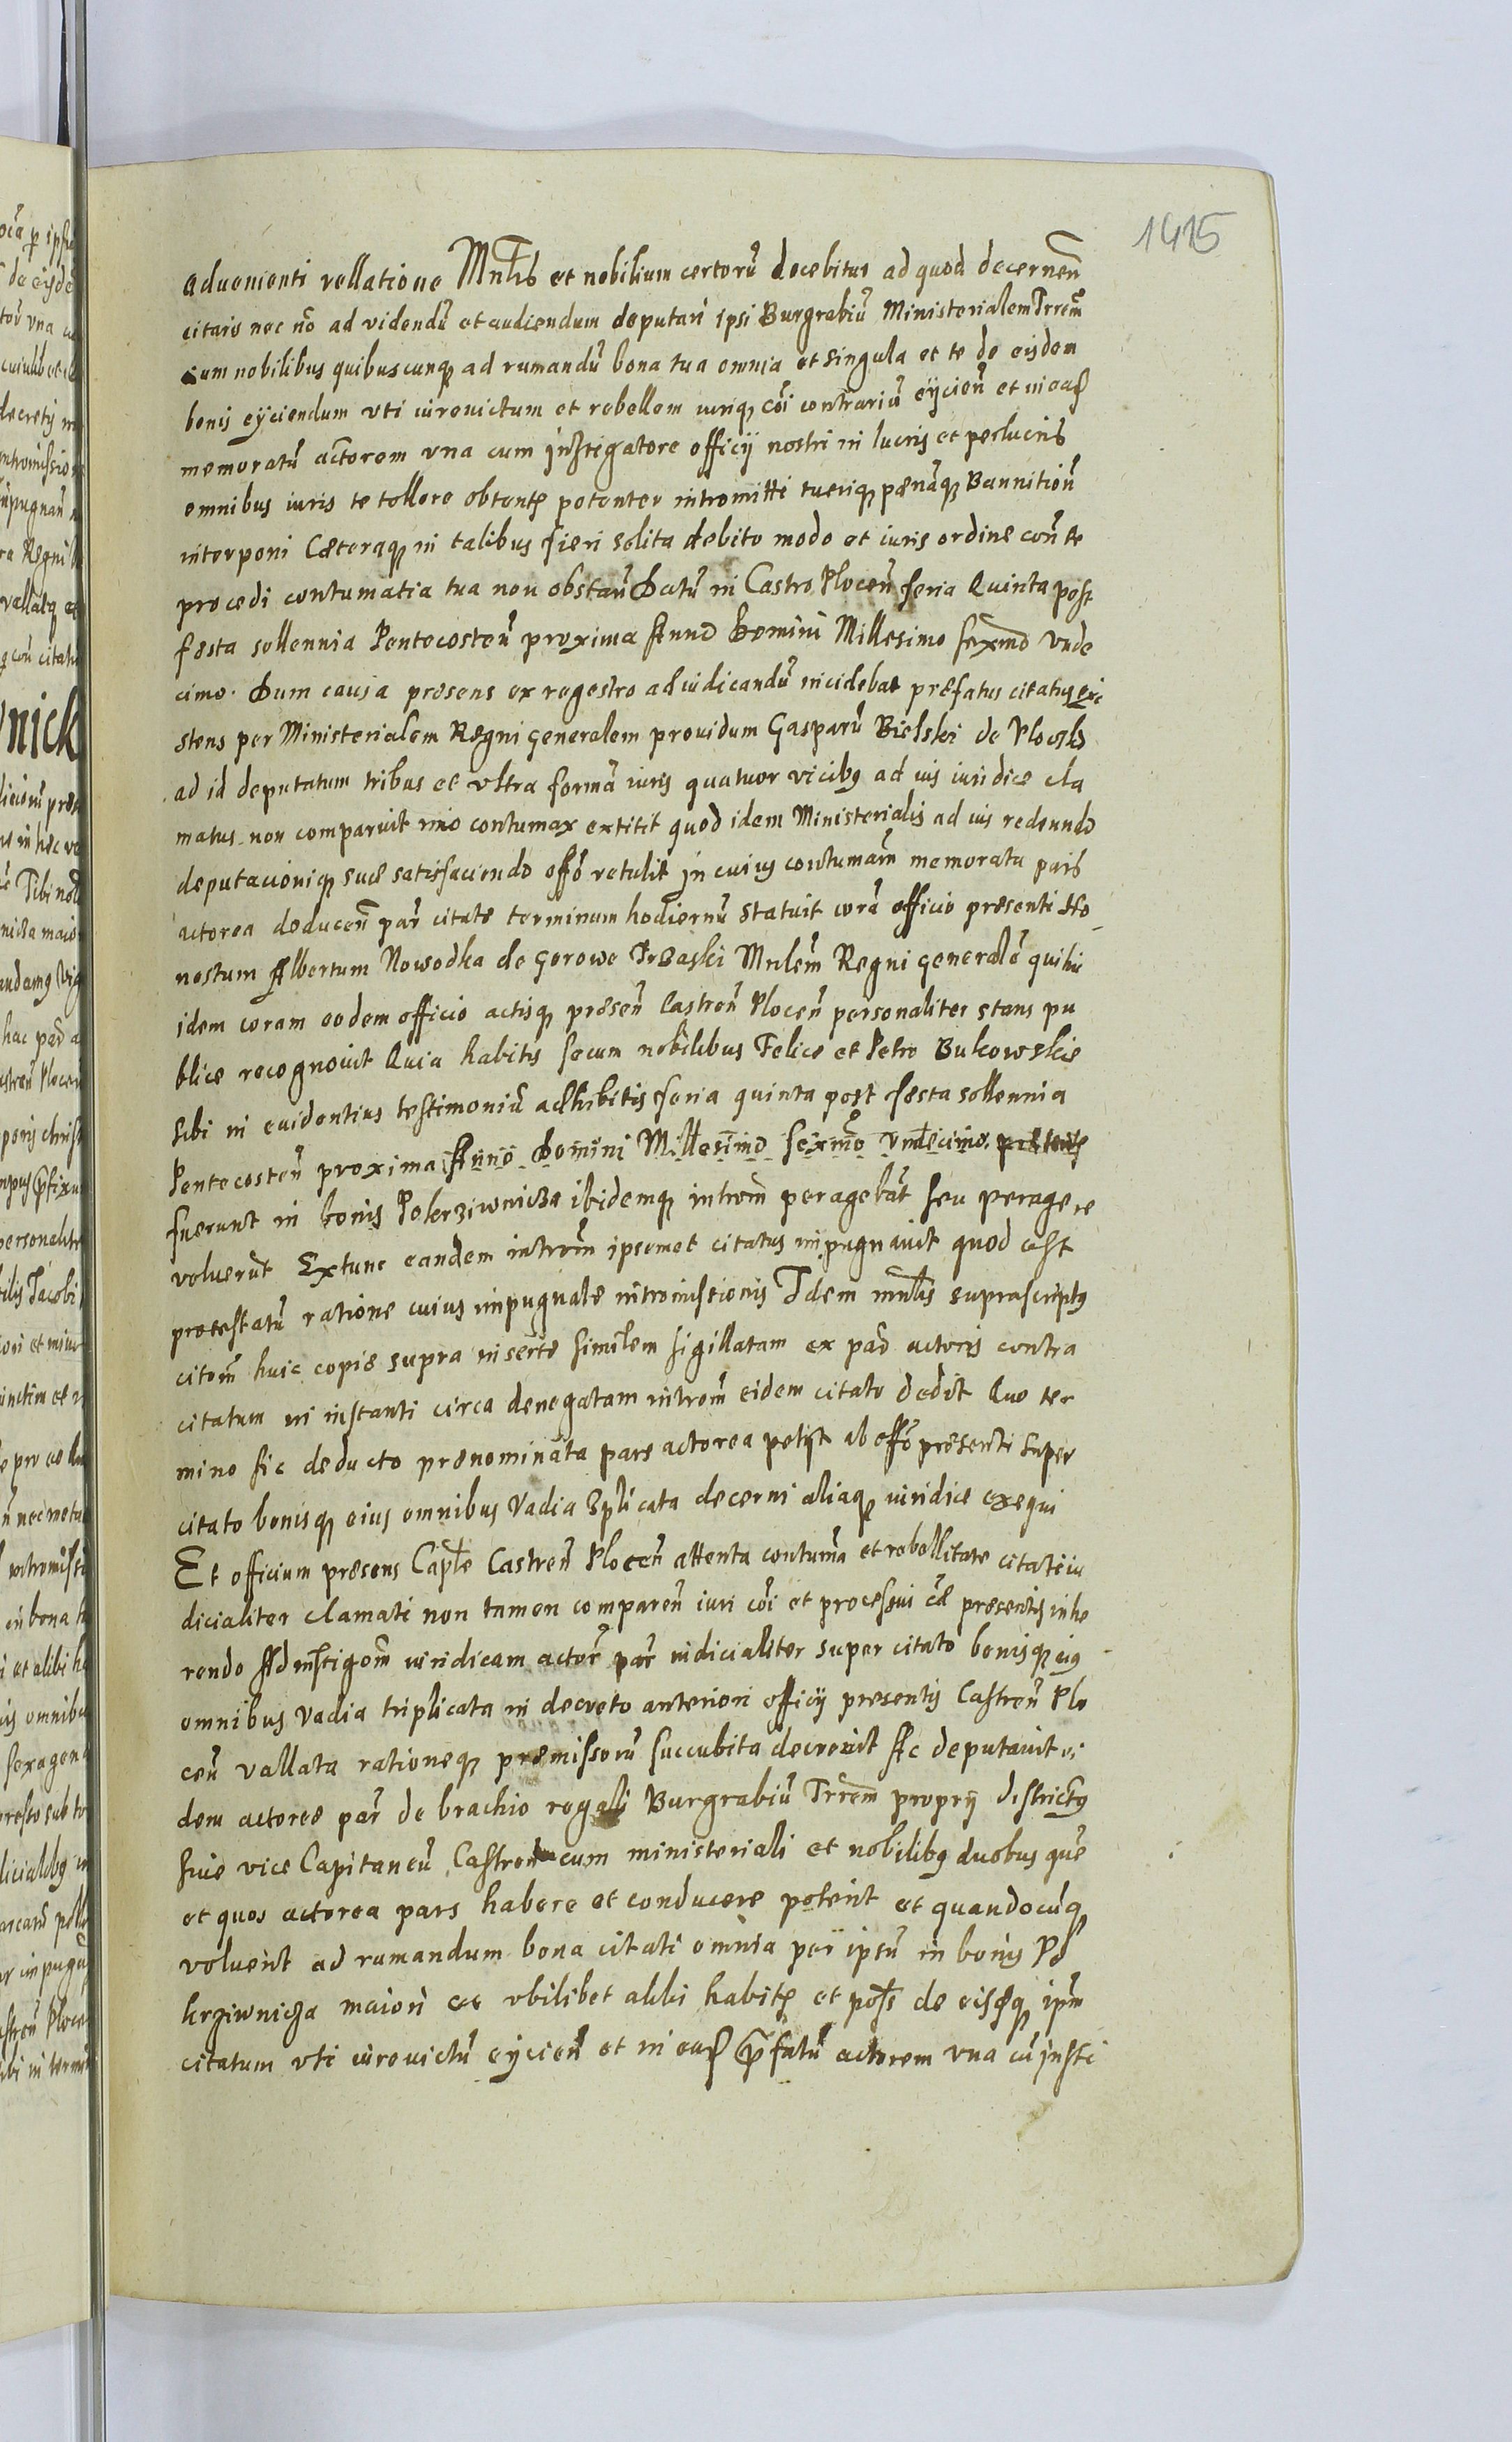 1415
advenienti rellatione Mnlis et nobilium certorũ docebitur ad quod decernen̄
citaris nec nō ad videndũ et audiendum deputari ipsi Burgrabiũ Ministerialem Trrem̃
cum nobilibus quibuscunq ad rumandũ bona tua omnia et singula et te de eisdem
bonis eÿciendum vti iurevictum et rebellem iuriq cōi contrariũ eÿcien̄ et in eaq
memoratũ actorem vna cum instigatore officÿ nostri in lucris et perlucris
omnibus iuris te tollere obtentq potenter intromitti tueriq pœnāq Bannition̄
interponi Cæteraq in talibus fieri solita debito modo et iuris ordine con̄ te
procedi contumatia tua non obstan̄ Datũ in Castro Plocen̄ feria Quinta post
festa sollennia Pentecosten̄ proxima Anno Domini Millesimo sexmo Vnde
cimo. Dum causa præsens ex regestro adiudicandũ incidebat præfatus citatus exi
stens per Ministerialem Regni generalem prouidum Gasparũ Bielski de Plocko
ad id deputatum tribus et vltra formā iuris quatuor vicibq ad ius iuridice cla
matus non comparuit imo contumax extitit quod idem Ministerialis ad ius redeundo
deputacioniq suæ satisfaciendo offō retulit In cuius contumām memorata pars
actorea deducen̄ par̄ citate terminum hodiernũ statuit corā officio præsenti Ho
nestum Albertum Nowodka de Gorowo Trzaski Mnlem̄ Regni generalē qui hic
idem coram eodem officio actisq præsen̄ Castren̄ Plocen̄ personaliter stans pu
blice recognovit Quia habitis secum nobilibus Felice et Petro Bukowskie
sibi in euidentius testimoniũ adhibitis feria quinta post festa sollennia
Pentecosten̄ proxima Anno Domini Millesimo sexmo Vndecimo
fuerunt in bonis Pokrziwnicza ibidemq introm̄ peragebāt seu peragere
voluerũt Extunc eandem introm̄ ipsemet citatus impugnauit quod est
protestatũ ratione cuius impugnate intromissionis Idem mnlis suprascriptq
citom̄ huic copiæ supra insertæ similem sigillatam ex par̄ actoris contra
citatum in instanti circa denegatam introm̄ eidem citato dedit Quo ter
mino sic deducto prænominata pars actorea petÿt ab offō præsenti super
citato bonisq eius omnibus Vadia 3plicata decerni aliaq iuridice exequi
Et officium præsens Caple Castren̄ Plocen̄ attenta contum̄a et rebellitate citati iu
dicialiter clamati non tamen comparen̄ iuri cōi et processui cæ præsentis inhe
rendo Ad instigom̄ iuridicam actor̄ par̄ iudicialiter super citato bonisq eiq
omnibus Vadia triplicata in decreto anteriori officÿ præsentis Castren̄ Plo
cen̄ vallata rationeq præmissorũ succubita decrevit Ac deputauit ei
dem actoreæ par̄ de brachio regali Burgrabiũ Trrem̄ proprÿ districtq
siue vice Capitaneũ Castren̄ cum ministeriali et nobilibq duobus quē
et quos actorea pars habere et conducere poterit et quandocũq
voluerit ad rumandum bona citati omnia per ipsũ in bonis Po
krziwnicza maiori ac vbilibet alibi habitq et poss de eisdq ipm̄
citatum vti iurevictũ eÿcien̄ et in eaq p̃fatũ actorem vna cũ insti